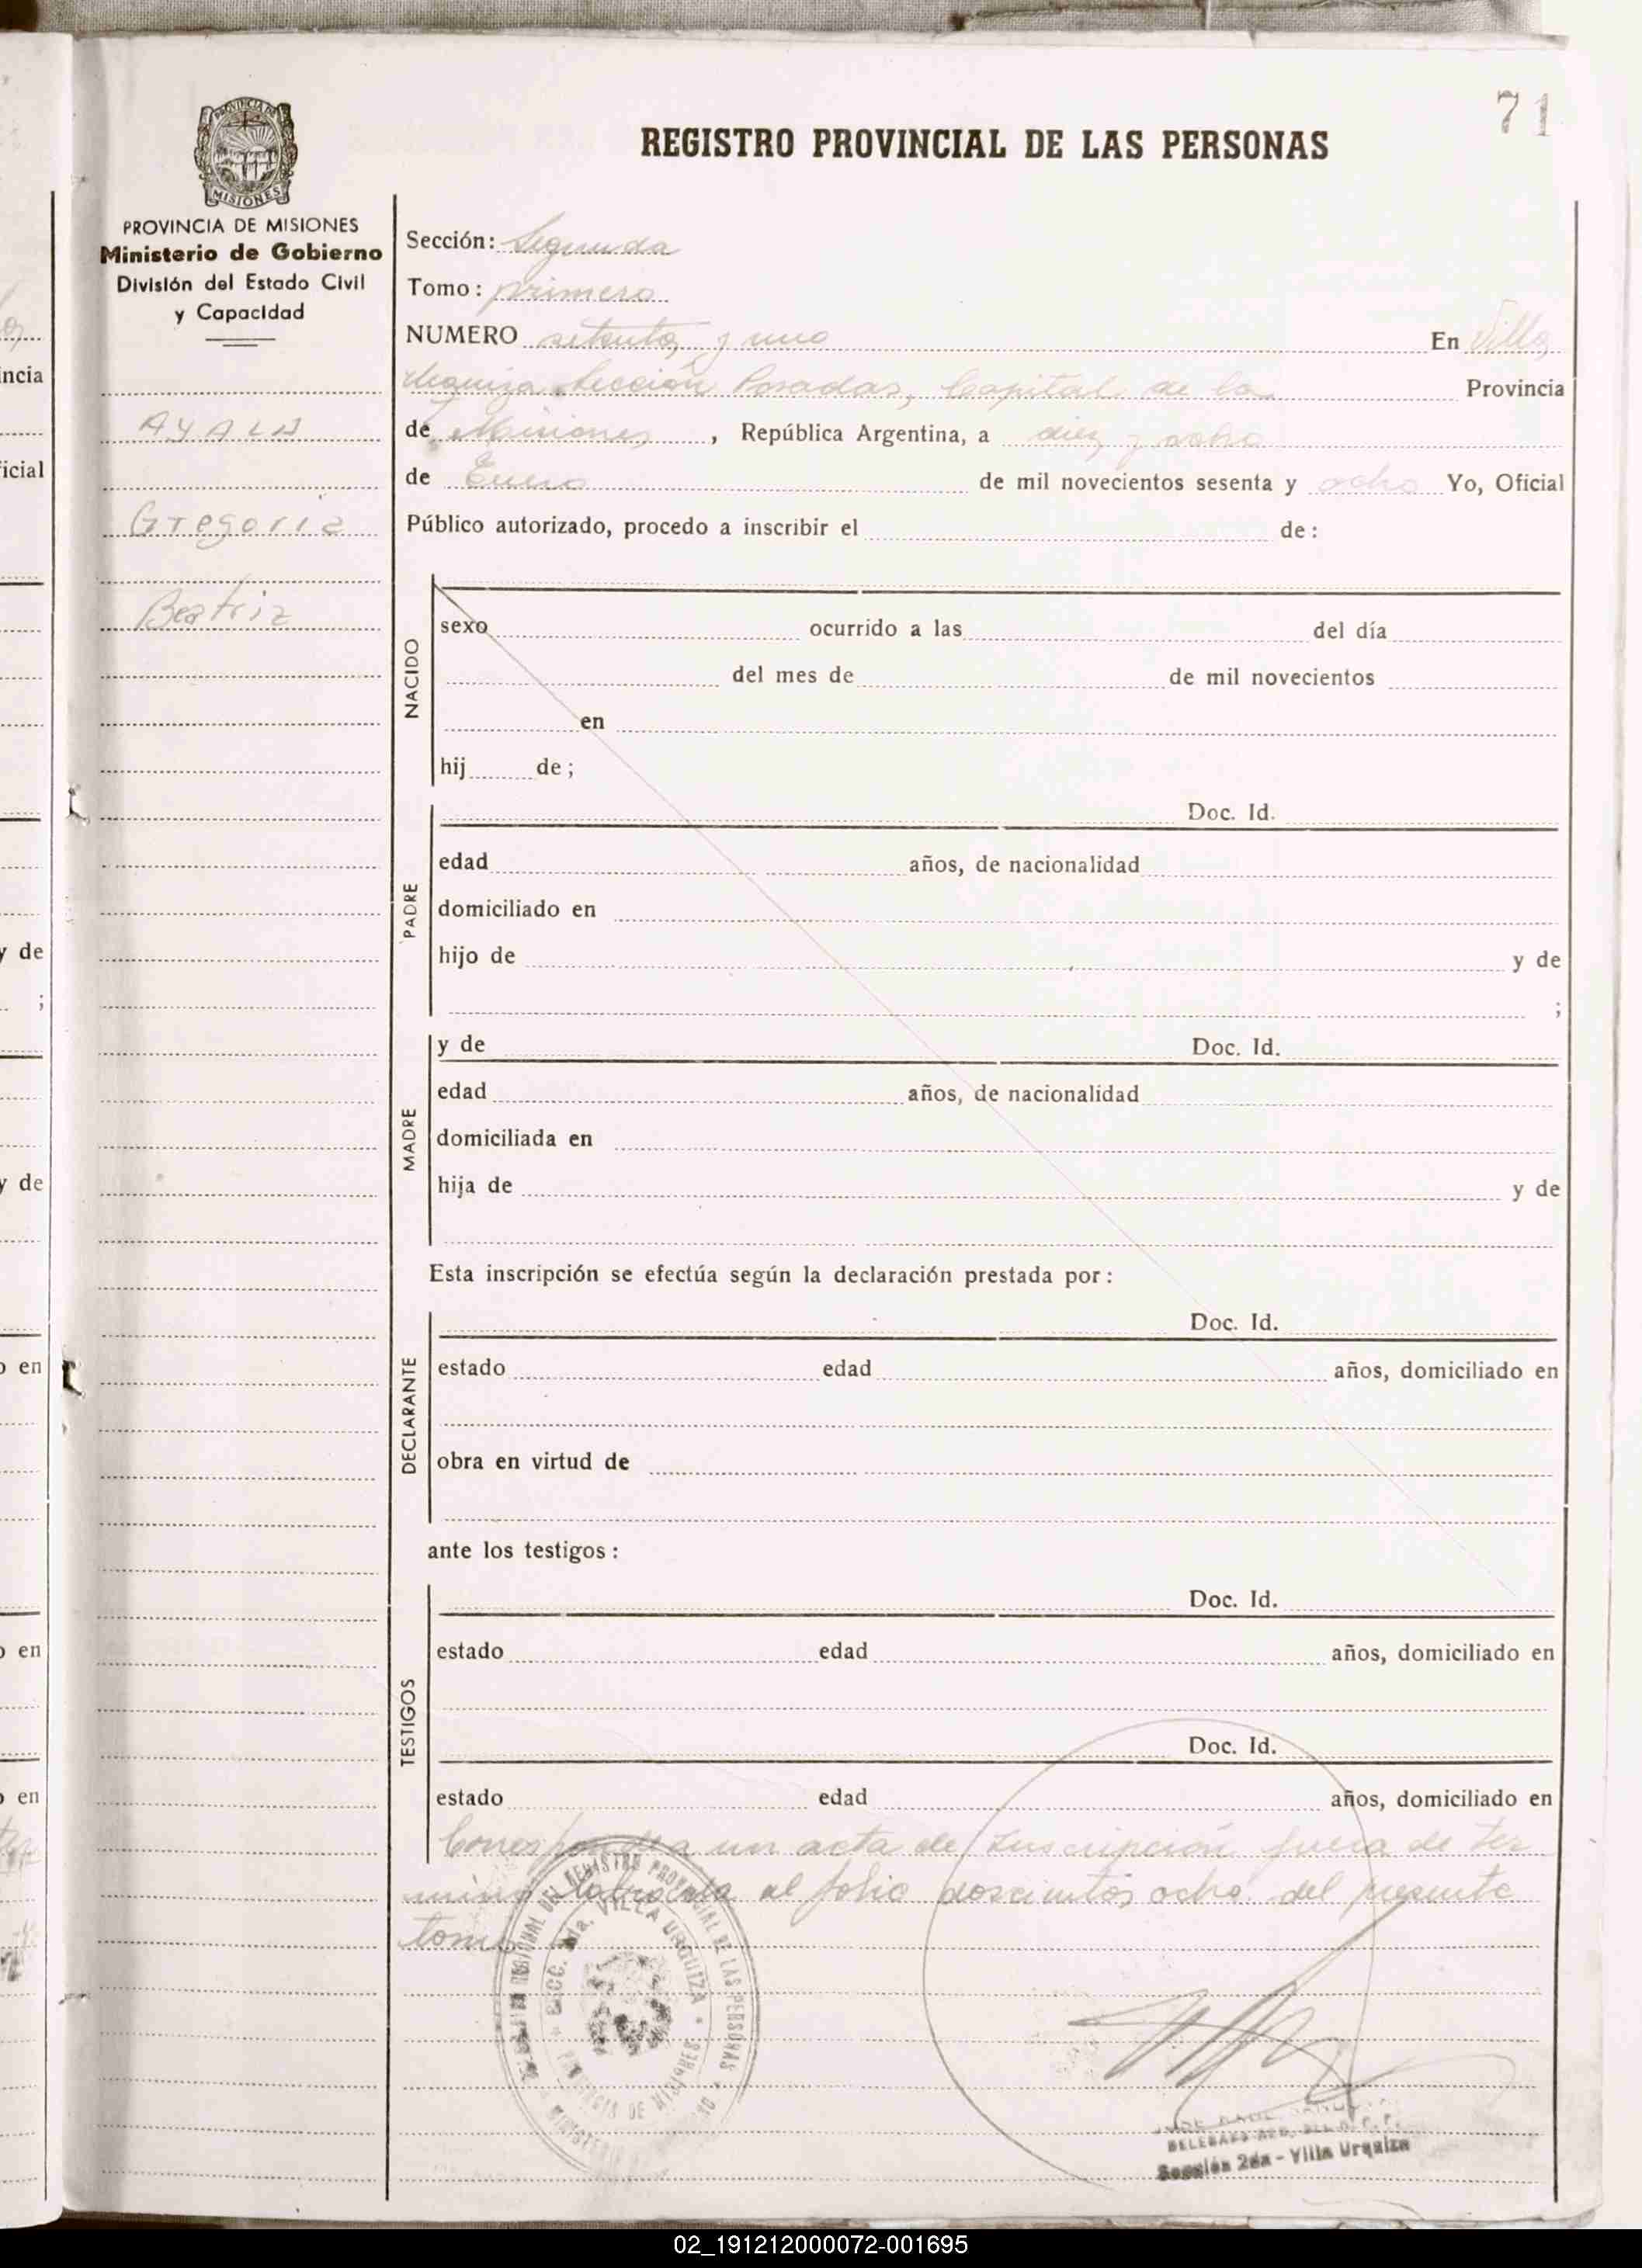 71
PROVINCIA DE MISIONES
REGISTRO PROVINCIAL DE LAS PERSONAS
PROVINCIA DE MISIONES
Ministerio de Gobierno
División del Estado Civil
y Capacidad
AYALA
Gregoria
Beatriz
Sección: Segunda
Tomo: primero
NUMERO setenta y uno En Villa
Urquiza Sección Posadas, Capital de la Provincia
de Misiones, República Argentina, a diez y ocho
de Enero de mil novecientos sesenta y ocho Yo, Oficial
Público autorizado, procedo a inscribir el de:
NACIDO
sexo ocurrido a las del día
del mes de de mil novecientos
en
hij de;
PADRE
Doc. Id.
edad años, de nacionalidad
domiciliado en
hijo de y de
;
MADRE
y de Doc. Id.
edad años, de nacionalidad
domiciliada en
hija de y de
Esta inscripción se efectúa según la declaración prestada por:
DECLARANTE
Doc. Id.
estado edad años, domiciliado en
obra en virtud de
ante los testigos:
TESTIGOS
Doc. Id.
estado edad años, domiciliado en
Doc. Id.
estado edad años, domiciliado en
Corresponde a un acta de Inscripción fuera de tér
mino labrada al folio doscientos ocho del presente
tomo
REGISTRO PROVINCIAL DE LAS PERSONAS
VILLA URQUIZA
Sección 2da - Villa Urquiza
ncia
icial
y de
;
y de
o en
o en
o en
02_191212000072-001695